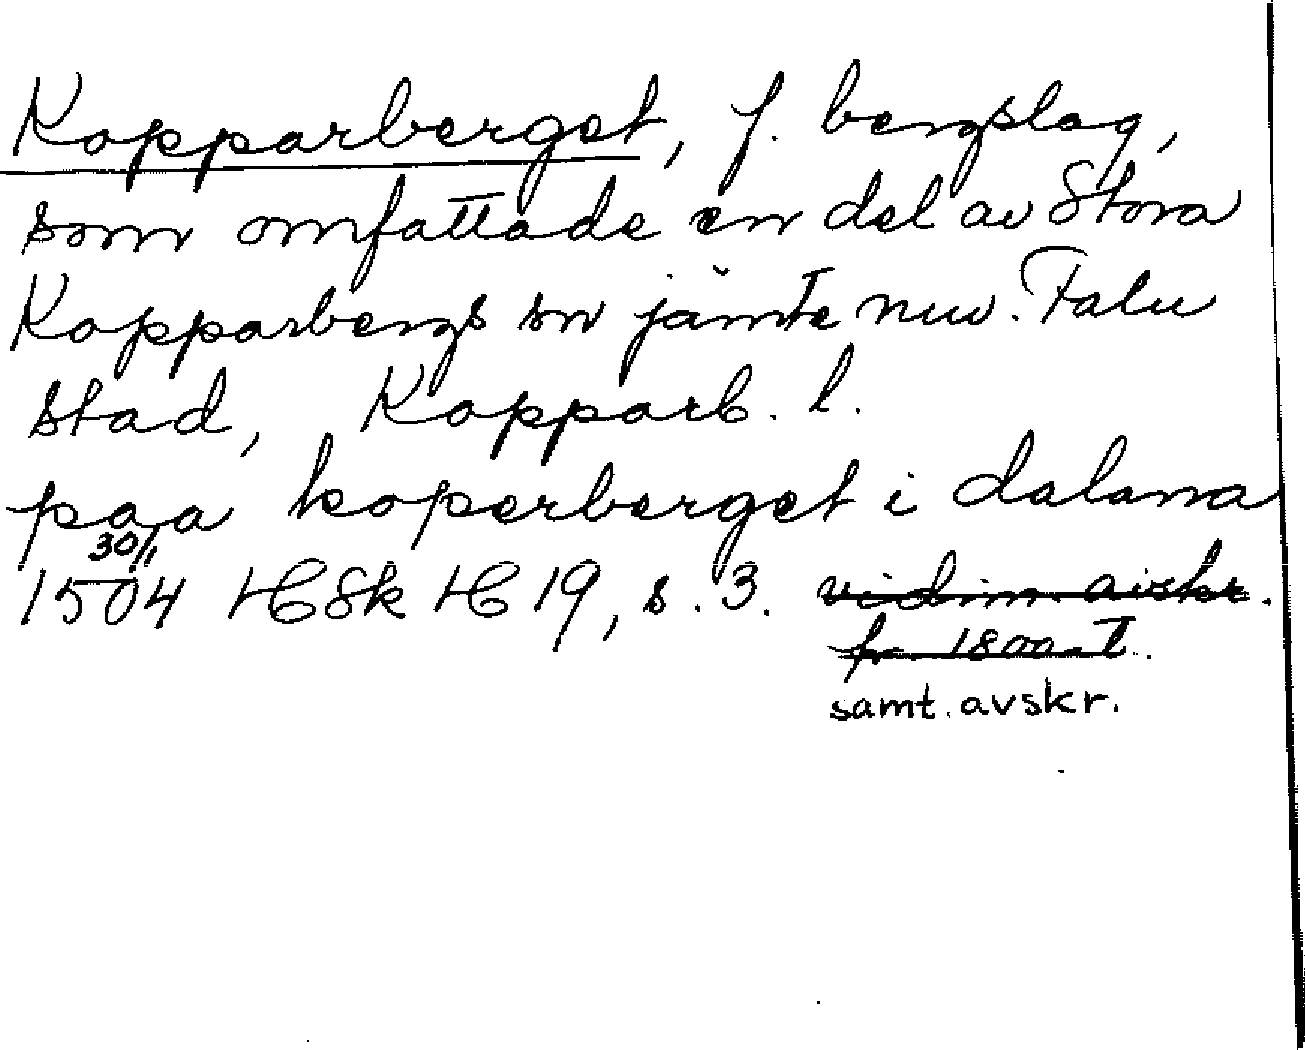 Kopparberget, f. bergslag,
som omfattade en del av Stora
Kopparbergs sn jämte nuv. Falu
stad, Kopparb. l.
paa koperberget i dalarna
30/1
1504 HSk H 19, s. 3. vidim. avskr.
fr. 1800-t.
samt. avskr.